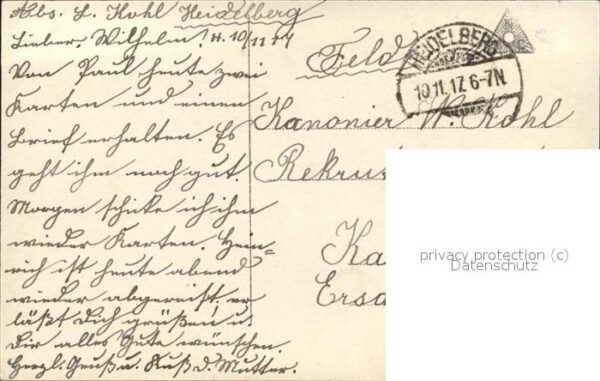 Abs. L. Kohl Heidelberg
Lieber Wilhelm! H. 10/11 17
Von Paul heute zwei
Karten und einen
Brief erhalten. Es
geht ihm noch gut
Morgen schicke ich ihm
wieder Karten. Hein=
rich ist heute abend
wieder abgereist, er
läßt Dich grüßen u.
Dir alles Gute wünschen.
Herzl. Gruß u. Kuß d. Mutter.
Feld
HEIDELBERG
10.11.17. 6-7N.
Kanonier W. Kohl
Rekru
Ka
Ersa
privacy protection (c)
Datenschutz